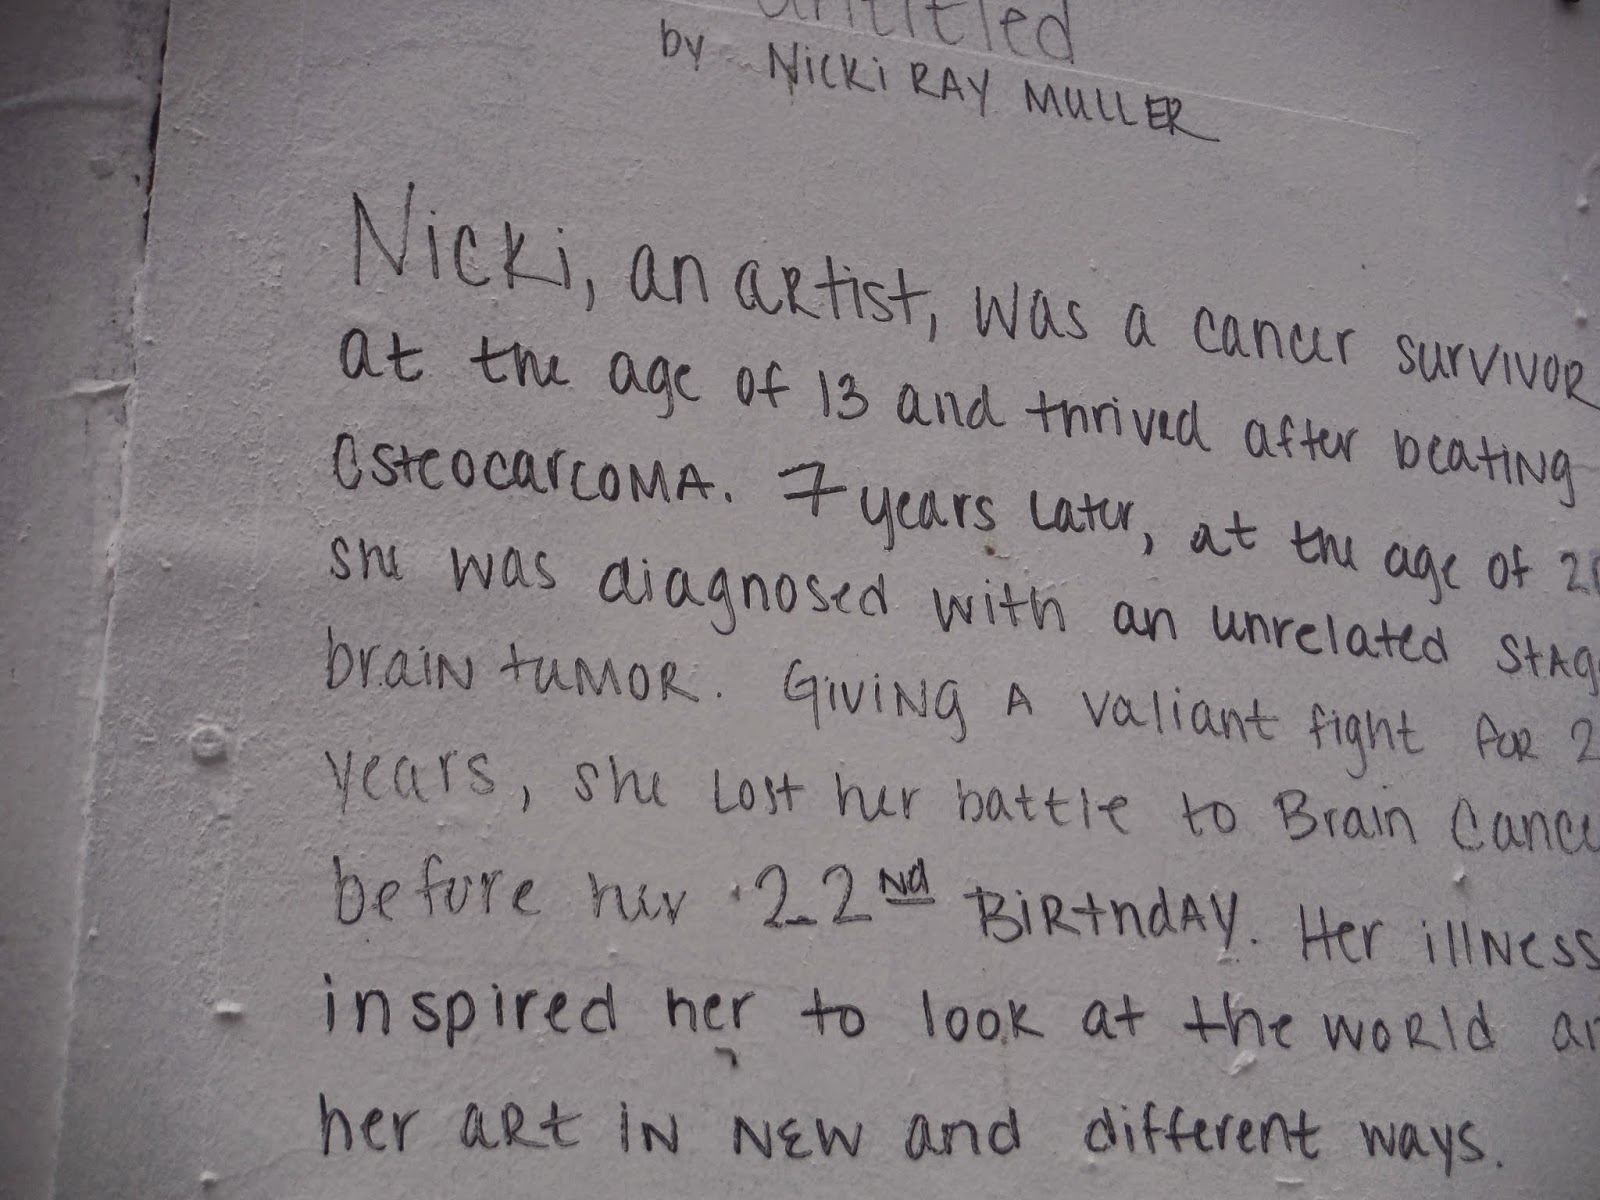 untitled
by Nicki Ray Muller
Nicki, an artist, was a cancer survivor
at the age of 13 and thrived after beating
Osteocarcoma. 7 years later, at the age of
she was diagnosed with an unrelated
brain tumor. Giving a valiant fight for 2
years, she lost her battle to Brain
before her 22nd Birthday. Her illness
inspired her to look at the world
her art in new and different ways.